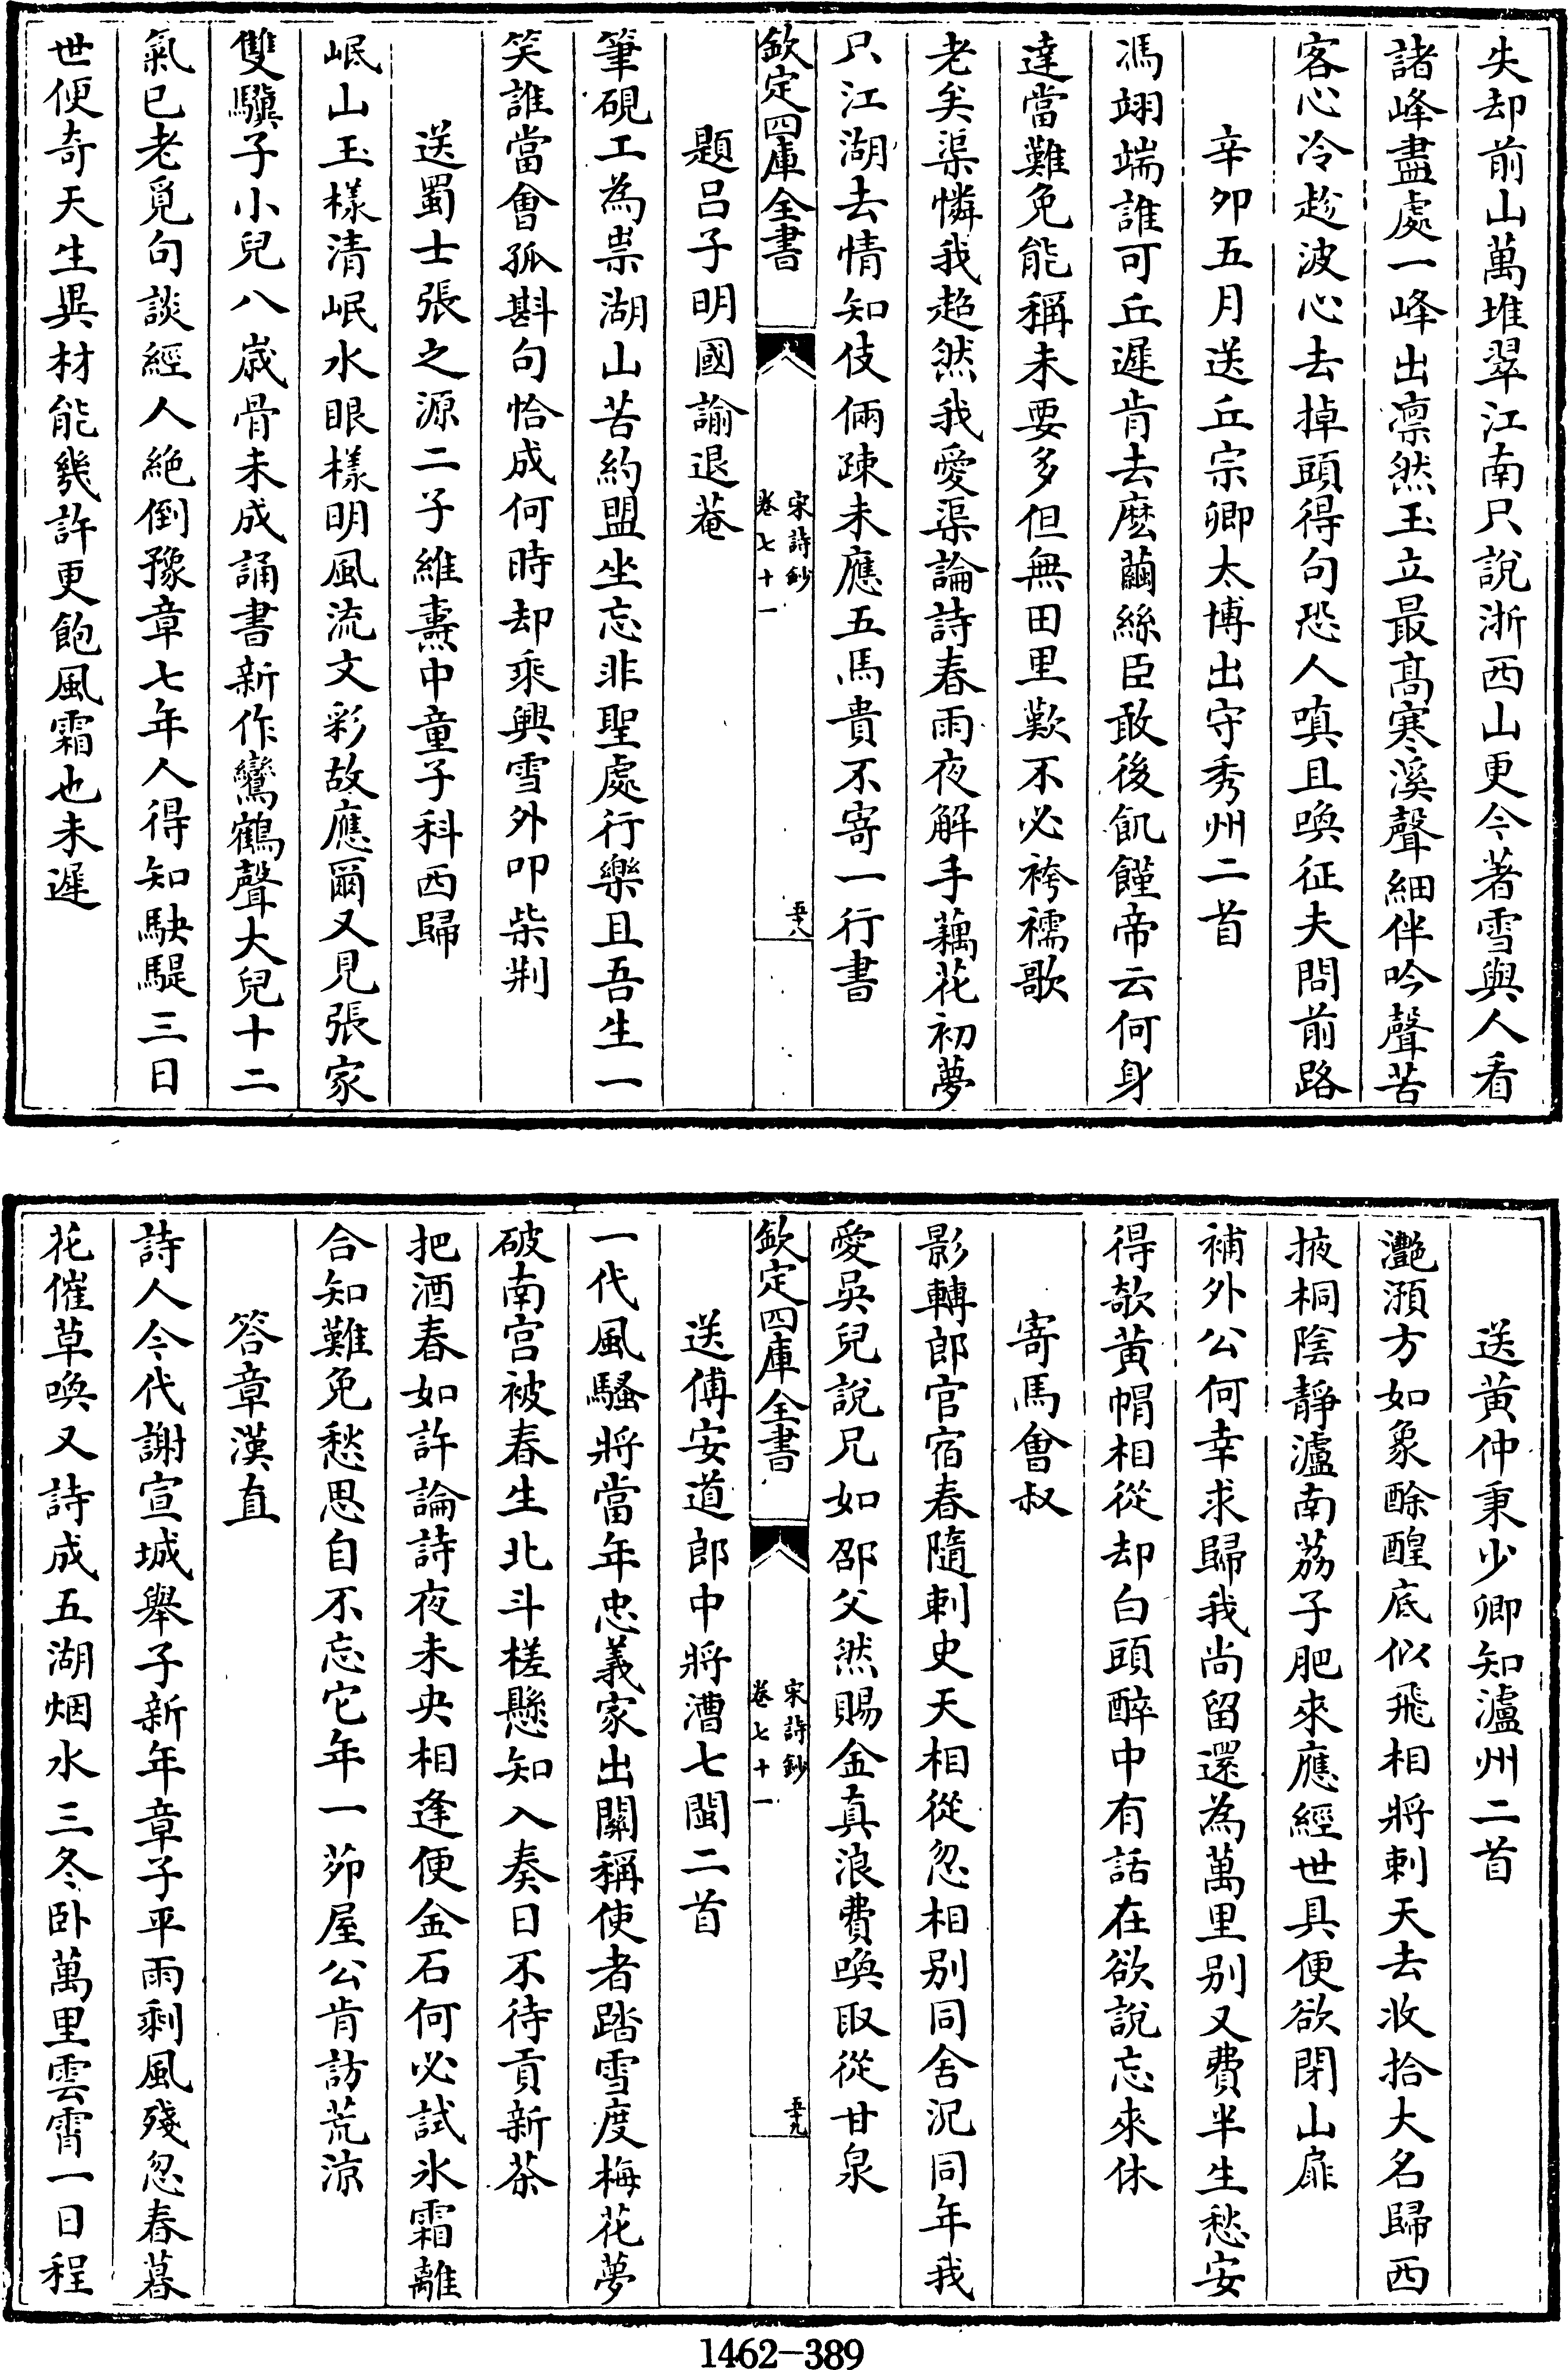 失却前山萬堆翠江南只說浙西山更今著雪與人看
諸峰盡處一峰出凛然玉立最髙寒溪聲細伴吟聲苦
客心冷趁波心去掉頭得句恐人嗔且喚征夫問前路
辛卯五月送丘宗卿太博出守秀州二首
馮翊端誰可丘遲肯去麽繭絲臣敢後飢饉帝云何身
達當難免能稱未要多但無田里歎不必袴襦歌
老矣渠憐我超然我愛渠論詩春雨夜解手藕花初夢
只江湖去情知伎倆疎未應五馬貴不寄一行書
欽定四庫全書
宋詩鈔
卷七十一
五十八
題吕子明國諭退菴
筆硯工為祟湖山苦約盟坐忘非聖處行樂且吾生一
笑誰當會孤斟句恰成何時却乘興雪外叩柴荆
送蜀士張之源二子維燾中童子科西歸
岷山玉樣清岷水眼樣明風流文彩故應爾又見張家
雙驥子小兒八歳骨未成誦書新作鸞鶴聲大兒十二
氣已老覓句談經人絶倒豫章七年人得知駃騠三日
世便奇天生異材能幾許更飽風霜也未遲
送黄仲秉少卿知瀘州二首
灔澦方如象酴醾底似飛相將刺天去收拾大名歸西
掖桐陰靜瀘南荔子肥來應經世具便欲閉山扉
補外公何幸求歸我尚留還為萬里别又費半生愁安
得欹黄帽相從却白頭醉中有話在欲說忘來休
寄馬會叔
影轉郎官宿春隨刺史天相從忽相别同舍況同年我
愛吳兒說兄如邵父然賜金真浪費喚取從甘泉
欽定四庫全書
宋詩鈔
卷七十一
五十九
送傅安道郎中將漕七閩二首
一代風騷將當年忠義家出關稱使者踏雪度梅花夢
破南宫被春生北斗槎懸知入奏日不待貢新茶
把酒春如許論詩夜未央相逢便金石何必試氷霜離
合知難免愁思自不忘它年一茆屋公肯訪荒涼
答章漢直
詩人今代謝宣城舉子新年章子平雨剩風殘忽春暮
花催草喚又詩成五湖烟水三冬卧萬里雲霄一日程
1462-389